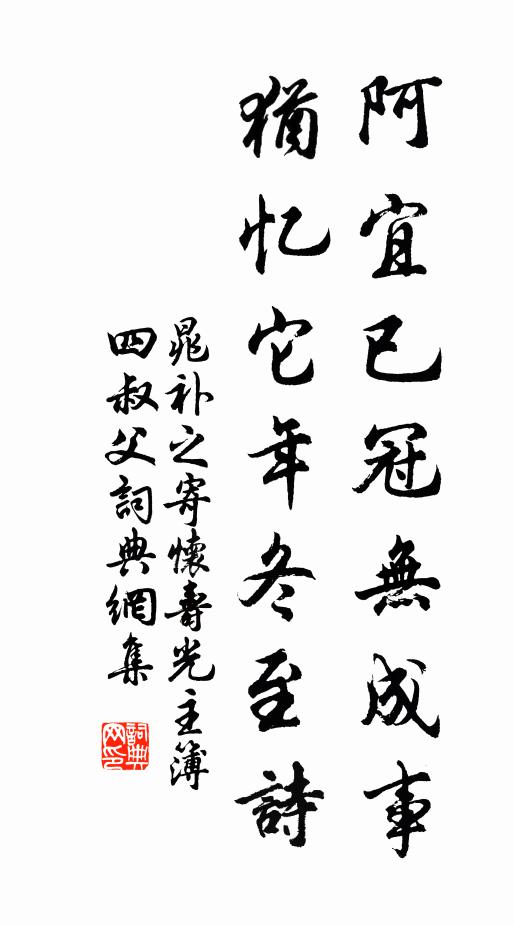 阿宜已冠無成事
猶忆它年冬至詩
晁补之寄懷壽光主簿
四叔父詞典網集
詞典网印